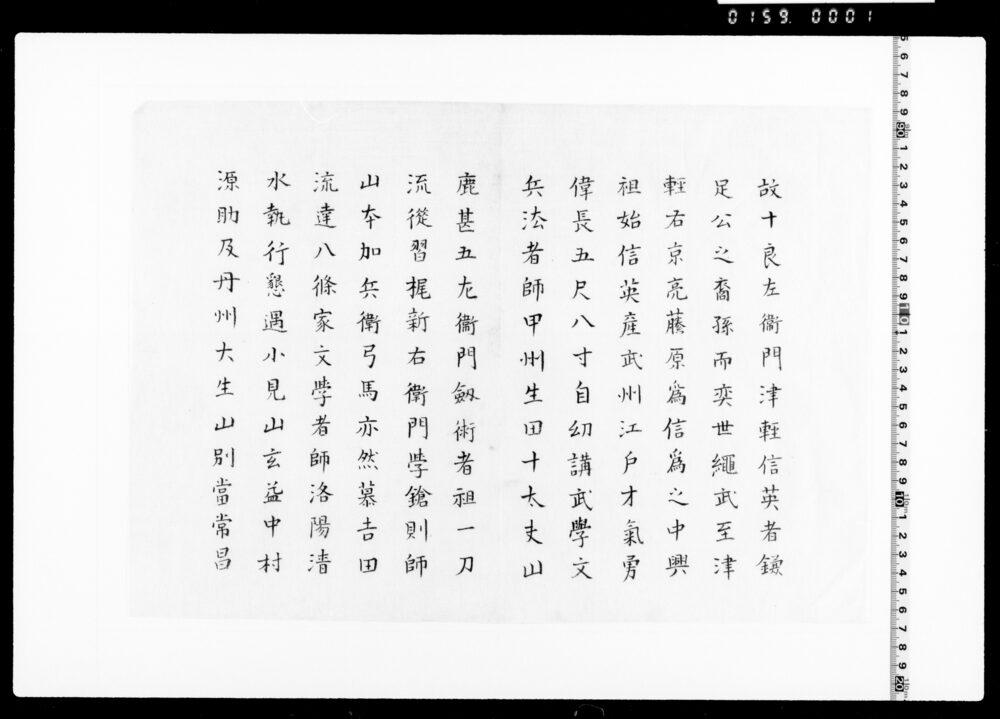 0159 0001
故十良左衞門津輕信英者鎌
足公之裔孫而奕世繩武至津
輕右京亮藤原爲信爲之中興
祖始信英産武州江戶才氣勇
偉長五尺八寸自幼講武學文
兵法者師甲州生田十太夫山
鹿甚五左衞門劔術者祖一刀
流從習梶新右衛門学鎗則師
山本加兵衛弓馬亦然慕吉田
流達八條家文学者師洛陽淸
水執行懇遇小見山玄益中村
源助及丹州大生山別當常昌